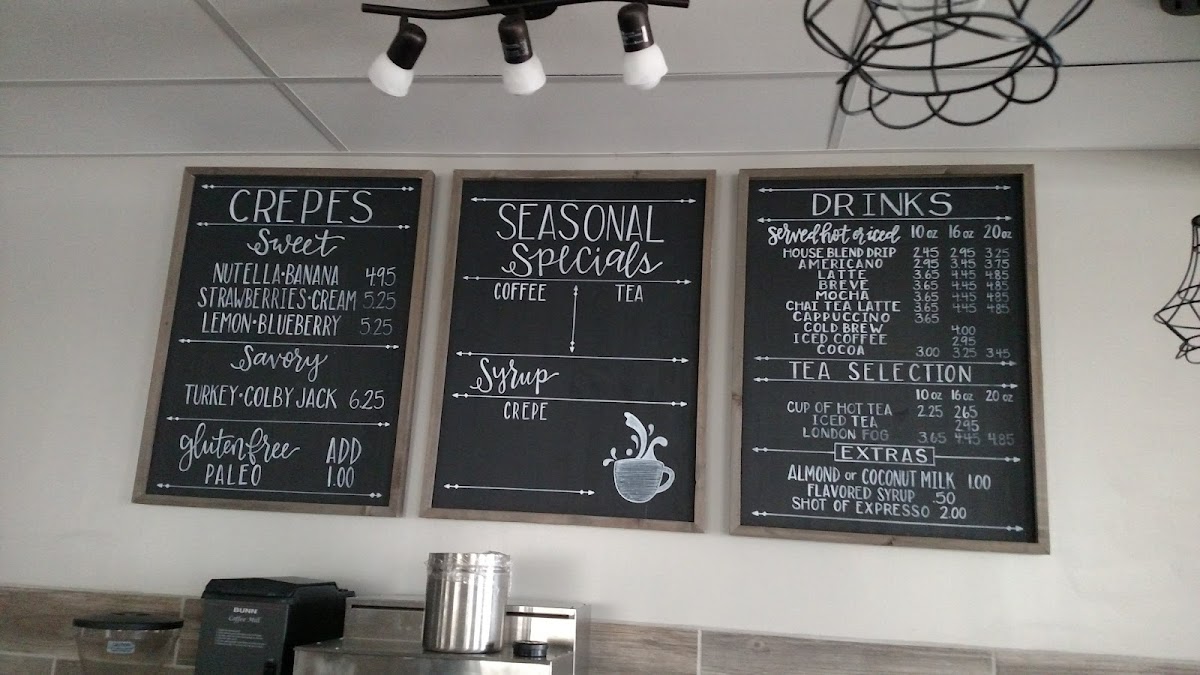 CREPES
Sweet
NUTELLA·BANANA 4.95
STRAWBERRIES·CREAM 5.25
LEMON·BLUEBERRY 5.25
Savory
TURKEY·COLBY JACK 6.25
gluten free ADD
PALEO 1.00
SEASONAL
Specials
COFFEE TEA
Syrup
CREPE
DRINKS
Served hot or iced 10 oz 16 oz 20 oz
HOUSE BLEND DRIP 2.45 2.95 3.25
AMERICANO 2.95 3.45 3.75
LATTE 3.65 4.45 4.85
BREVE 3.65 4.45 4.85
MOCHA 3.65 4.45 4.85
CHAI TEA LATTE 3.65 4.45 4.85
CAPPUCCINO 3.65
COLD BREW 4.00
ICED COFFEE 2.95
COCOA 3.00 3.25 3.45
TEA SELECTION
10 oz 16 oz 20 oz
CUP OF HOT TEA 2.25 2.65
ICED TEA 2.95
LONDON FOG 3.65 4.45 4.85
EXTRAS
ALMOND or COCONUT MILK 1.00
FLAVORED SYRUP .50
SHOT OF EXPRESSO 2.00
BUNN
Coffee Mill